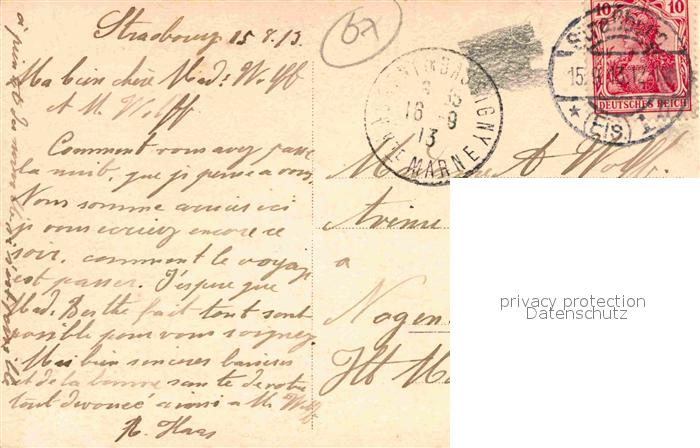 Strasbourg 15.8.13.
Ma bien chere Mad: Wolff
et M. Wolff
Comment vous avez passe
la nuit, que je pense a vous
Nous somme arrives ici
je vous ecrirez encore ce
soir, comment le voyage
est passer. J'espere que
Mad. Berthe fait tout sont
possible pour vous soignez
Mes bien sinceres baisers
et de la bonne sante de votre
tout devouee ainsi a M. Wolff
R. Haas
67
16 - 9
13
HTE MARNE
10 10
DEUTSCHES REICH
15.9.13.12
* (Els) 1
M A Wolff
Avenue
a
Nogen
Hte Ma
privacy protection
Datenschutz